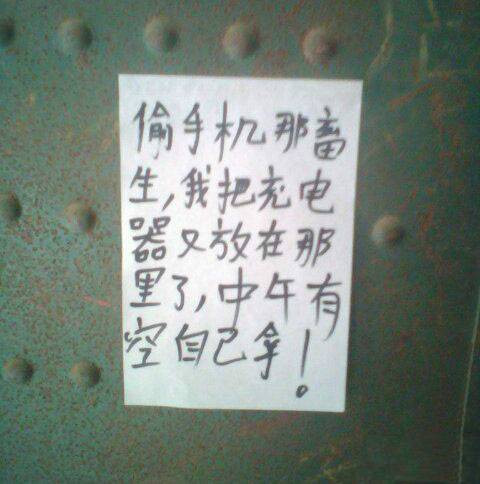 偷手机那畜
生,我把充电
器又放在那
里了,中午有
空自己拿!